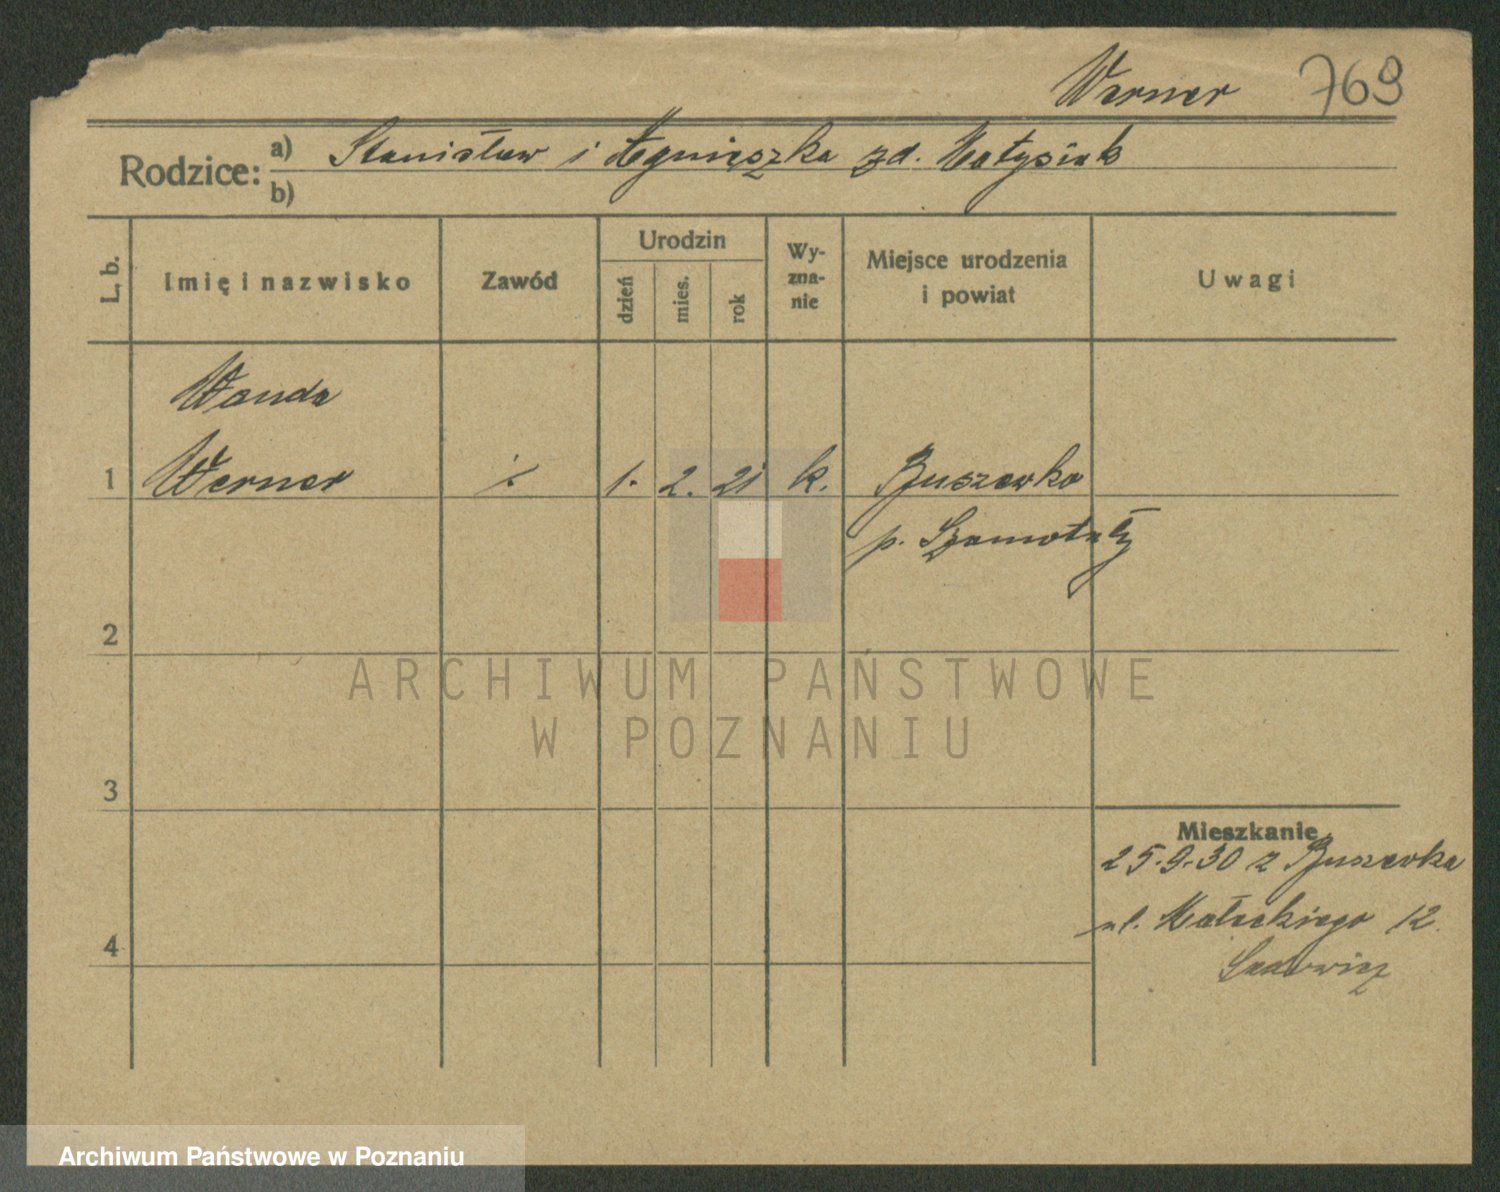 Werner 769
Rodzice: a) Stanisław i Agnieszka zd. Matysiak
b)
L. b. Imię i nazwisko Zawód Urodzin dzień mies. rok Wyznanie Miejsce urodzenia i powiat Uwagi
Wanda
1 Werner ·/. 1. 2. 21 k. Buszewko
p. Szamotuły
2
ARCHIWUM PAŃSTWOWE
W POZNANIU
3
Mieszkanie
25.9.30 z Buszewka
ul. Małeckiego 12.
4
Archiwum Państwowe w Poznaniu